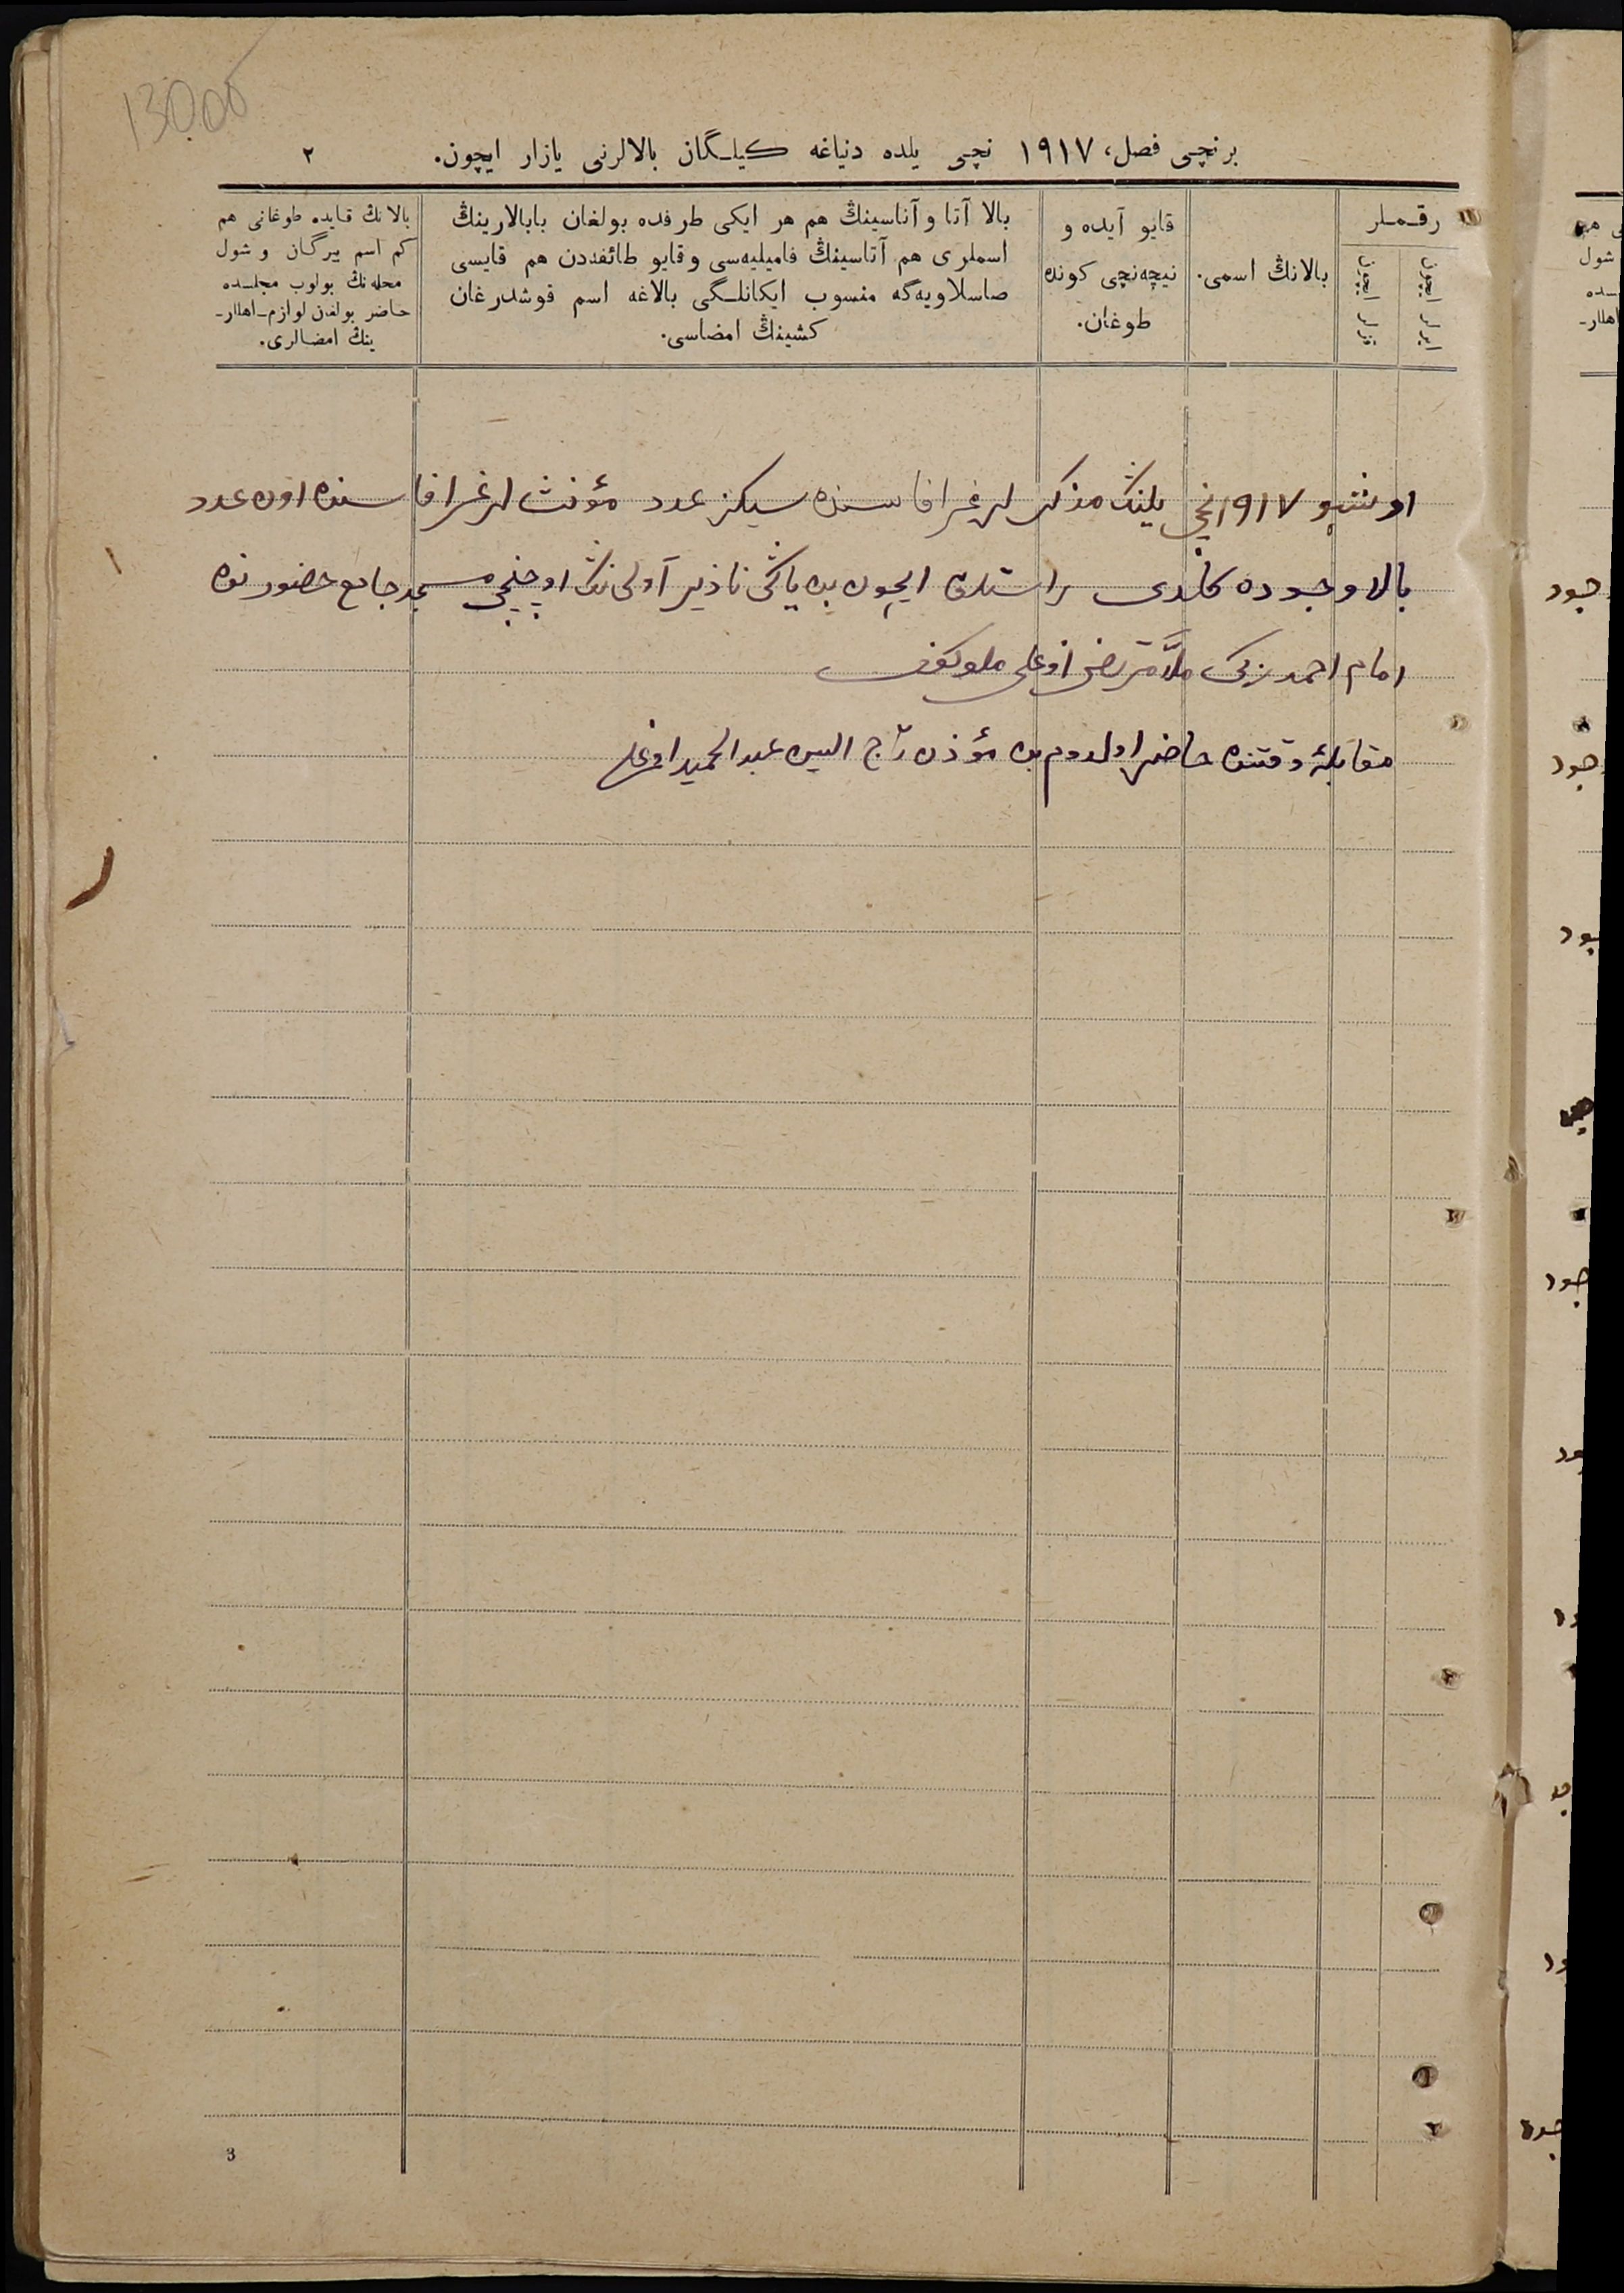 13000
برنچی فصل، ١٩١٧ نچی یلده دنیاغه کیلگان بالالرنی یازار ایچون. ٢
رقملر
ایرلر ایچون
قزلر ایچون
بالانڭ اسمی.
قایو آیده و
نیچه‌نچی کونده
طوغان.
بالا آتا و آناسینڭ هم هر ایکی طرفده بولغان بابالارینڭ
اسملری هم آتاسینڭ فامیلیه‌سی و قایو طائفه‌دن هم قایسی
صاسلاویه‌گه منسوب ایکانلگی بالاغه اسم قوشدرغان
کشینڭ امضاسی.
بالانڭ قایده طوغانی هم
کم اسم بیرگان و شول
محله‌نڭ بولوب مجلسده
حاضر بولغان لوازم اهللر-
ینڭ امضالری.
اوشبو ١٩١٧ نچی یلینڭ مذکرلر غرافاسنده سیکز عدد مؤنثلر غرافاسنده اون عدد
بالا وجوده کلدی راستلق ایچون بن یاڭی ناذیر آولی نڭ اوچنچی مسجد جامع حضورنده
امام احمد زکی ملا مرتضی اوغلی ملوکف
مقابله وقتنده حاضر اولدوم بن مؤذن تاج الدین عبد الحمید اوغلی
3